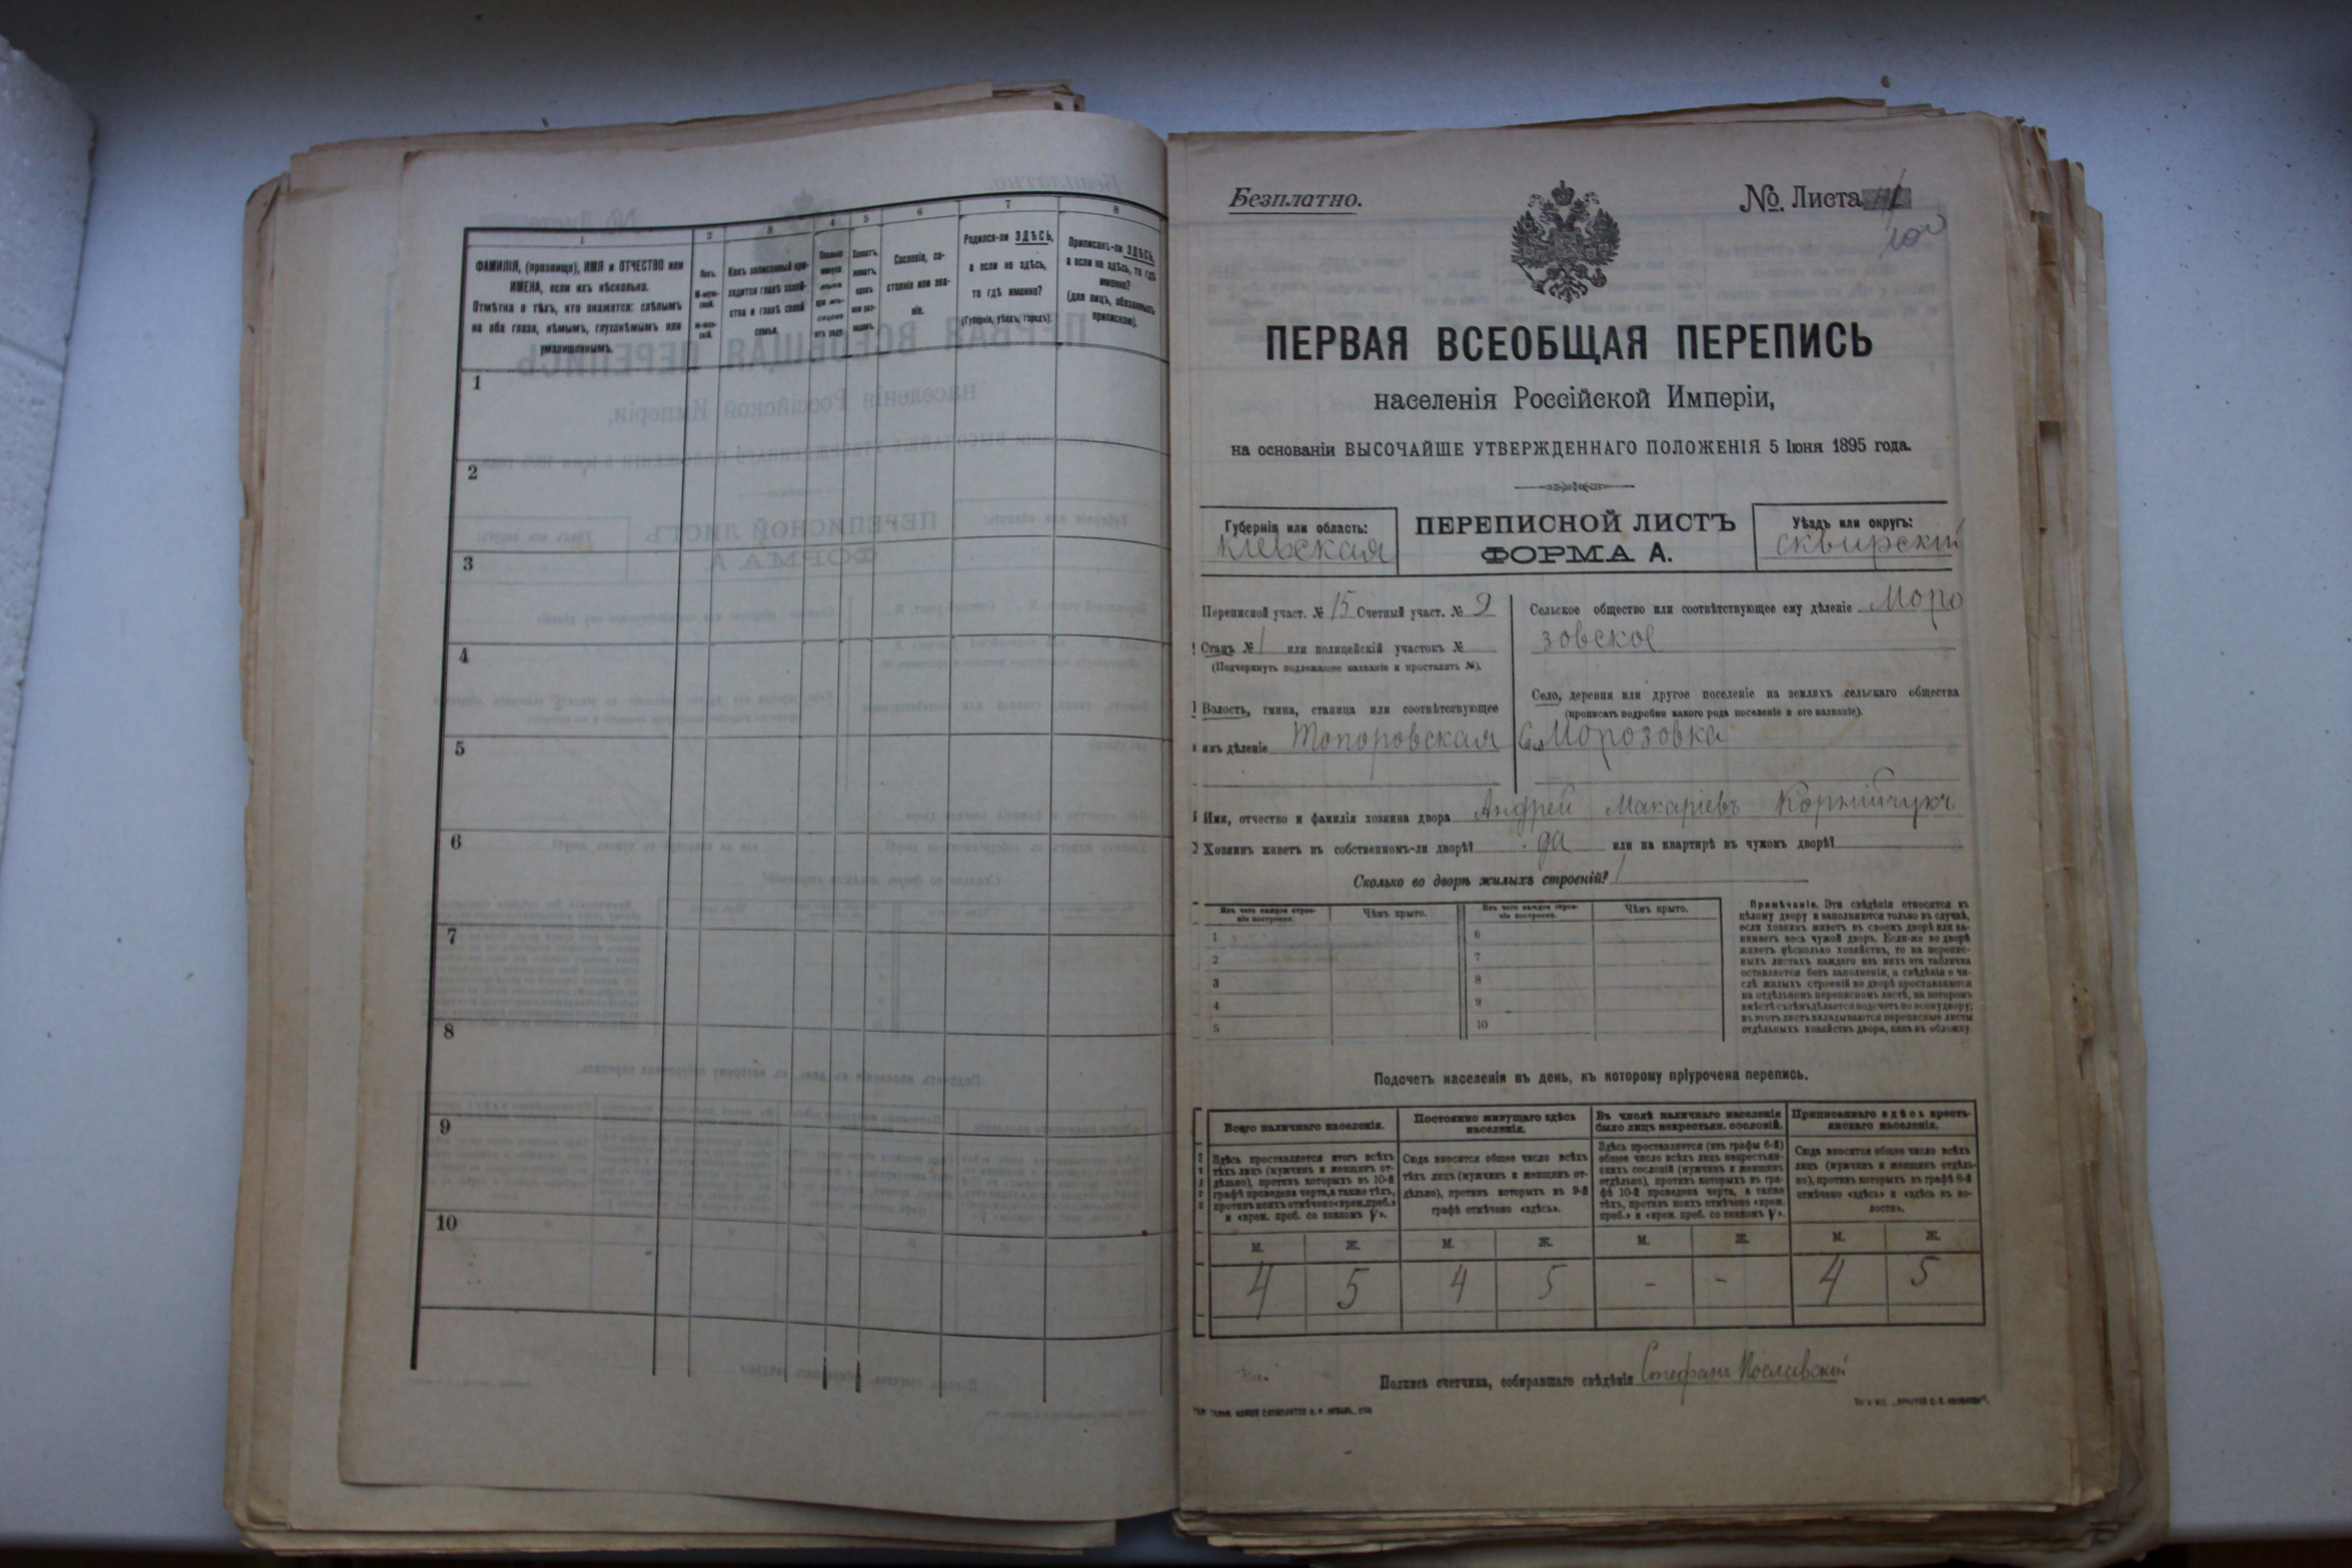 1
2
3
4
5
6
7
8
ФАМИЛІЯ, (прозвище), ИМЯ и ОТЧЕСТВО или
ИМЕНА, если ихъ нѣсколько.
Отмѣтка о тѣхъ, кто окажется: слѣпымъ
на оба глаза, нѣмымъ, глухонѣмымъ или
умалишеннымъ.
Полъ.
М-муж-
ской.
Ж-жен-
скій.
Какъ записанный при-
ходится главѣ хозяй-
ства и главѣ своей
семьи.
Сословіе, со-
стояніе или зва-
ніе.
Родился-ли ЗДѢСЬ,
а если не здѣсь,
то гдѣ именно?
(Губернія, уѣздъ, городъ).
Приписанъ-ли ЗДѢСЬ,
а если не здѣсь, то гдѣ
именно?
(для лицъ, обязанныхъ
припискою).
1
2
3
4
5
6
7
8
9
10
Безплатно.
№ Листа
ПЕРВАЯ ВСЕОБЩАЯ ПЕРЕПИСЬ
населенія Россійской Имперіи,
на основаніи ВЫСОЧАЙШЕ УТВЕРЖДЕННАГО ПОЛОЖЕНІЯ 5 Іюня 1895 года.
Губернія или область:
Кіевская
ПЕРЕПИСНОЙ ЛИСТЪ
ФОРМА А.
Уѣздъ или округъ:
Сквирскій
Переписной участ. № 15 Счетный участ. № 9
Станъ № 1 или полицейскій участокъ №
(Подчеркнуть подлежащее названіе и проставить №).
Волость, гмина, станица или соотвѣтствующее
имъ дѣленіе Топоровская
Сельское общество или соотвѣтствующее ему дѣленіе Моро
зовское
Село, деревня или другое поселеніе на земляхъ сельскаго общества
(прописать подробно какого рода поселеніе и его названіе)
Морозовка
Имя, отчество и фамилія хозяина двора Андрей Макаріевъ Корнійчукъ
Хозяинъ живетъ въ собственномъ-ли дворѣ? да или на квартирѣ въ чужомъ дворѣ?
Сколько во дворѣ жилыхъ строеній? 1
Изъ чего каждое строе-
ніе построено.
Чѣмъ крыто.
Изъ чего каждое строе-
ніе построено.
Чѣмъ крыто.
1
2
3
4
5
6
7
8
9
10
Примѣчаніе. Эти свѣдѣнія относятся къ
цѣлому двору и заполняются только въ случаѣ,
если хозяинъ живетъ въ своемъ дворѣ или за-
нимаетъ весь чужой дворъ. Если-же во дворѣ
живетъ нѣсколько хозяйствъ, то на перепис-
ныхъ листахъ каждаго изъ нихъ эта табличка
оставляется безъ заполненія, а свѣдѣнія о чи-
слѣ жилыхъ строеній во дворѣ проставляются
на отдѣльномъ переписномъ листѣ, на которомъ
вмѣстѣ съ тѣмъ дѣлается подсчетъ по всему двору;
въ этотъ листъ вкладываются переписные листы
отдѣльныхъ хозяйствъ двора, какъ въ обложку.
Подсчетъ населенія въ день, къ которому пріурочена перепись.
Всего наличнаго населенія.
Постоянно живущаго здѣсь
населенія.
Въ числѣ наличнаго населенія
было лицъ некрестьян. сословій.
Приписаннаго здѣсь кресть-
янскаго населенія.
Здѣсь проставляется итогъ всѣхъ
тѣхъ лицъ (мужчинъ и женщинъ от-
дѣльно), противъ которыхъ въ 10-й
графѣ проведена черта, а также тѣхъ,
противъ коихъ отмѣчено «врем. преб.»
и «врем. преб. со знакомъ V».
Сюда вносится общее число всѣхъ
тѣхъ лицъ (мужчинъ и женщинъ от-
дѣльно), противъ которыхъ въ 9-й
графѣ отмѣчено «здѣсь».
Здѣсь проставляется (изъ графы 6-й)
общее число всѣхъ лицъ некрестьян-
скихъ сословій (мужчинъ и женщинъ
отдѣльно), противъ которыхъ въ гра-
фѣ 10-й проведена черта, а также
тѣхъ, противъ коихъ отмѣчено «врем.
преб.» и «врем. преб. со знакомъ V».
Сюда вносится общее число всѣхъ
лицъ (мужчинъ и женщинъ отдѣль-
но), противъ которыхъ въ графѣ 8-й
отмѣчено «здѣсь» и «здѣсь въ во-
лости».
М. Ж. М. Ж. М. Ж. М. Ж.
4 5 4 5 - - 4 5
Подпись счетчика, собиравшаго свѣдѣнія Стефанъ